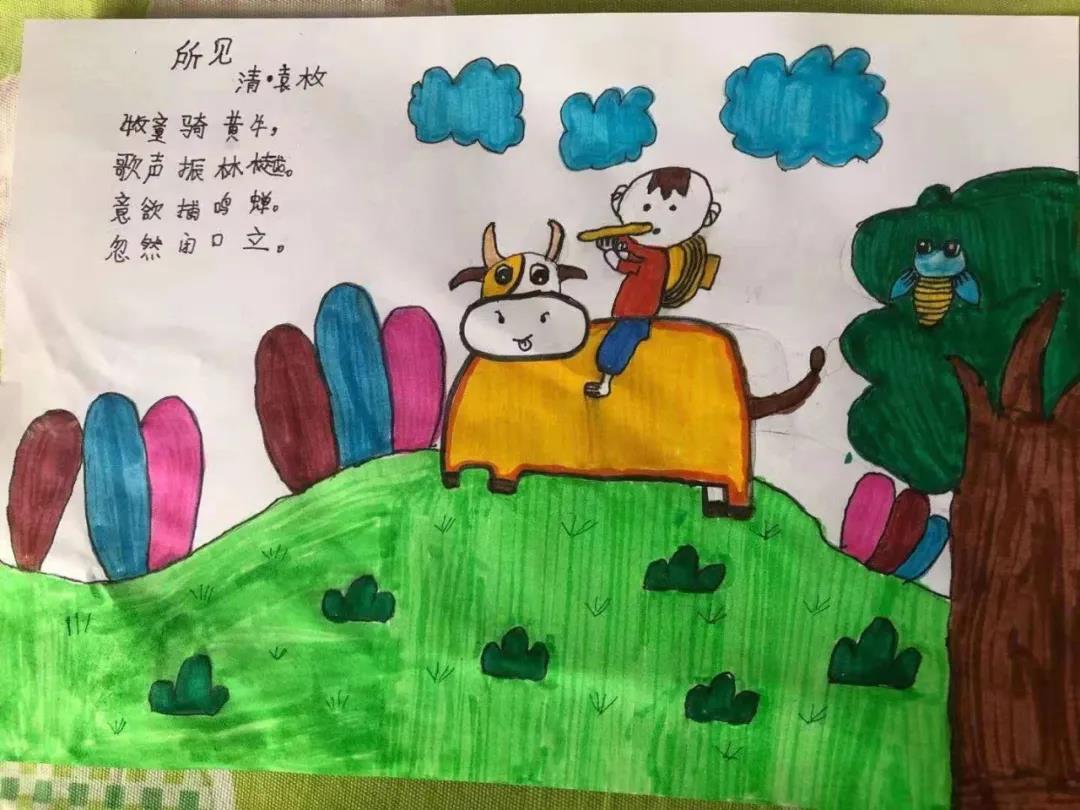 所见
清·袁枚
牧童骑黄牛，
歌声振林樾。
意欲捕鸣蝉。
忽然闭口立。